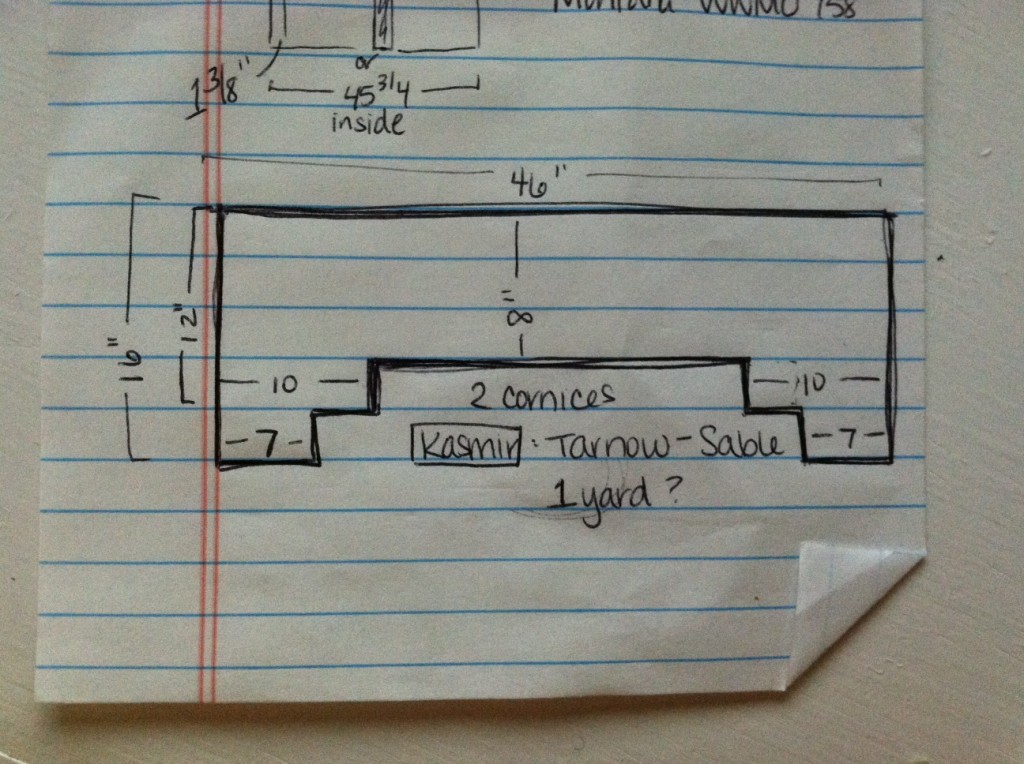 1 3/8"
or
45 3/4
inside
46"
16"
12"
8"
10
10
2 cornices
7
Kasmir : Tarnow-Sable
7
1 yard ?